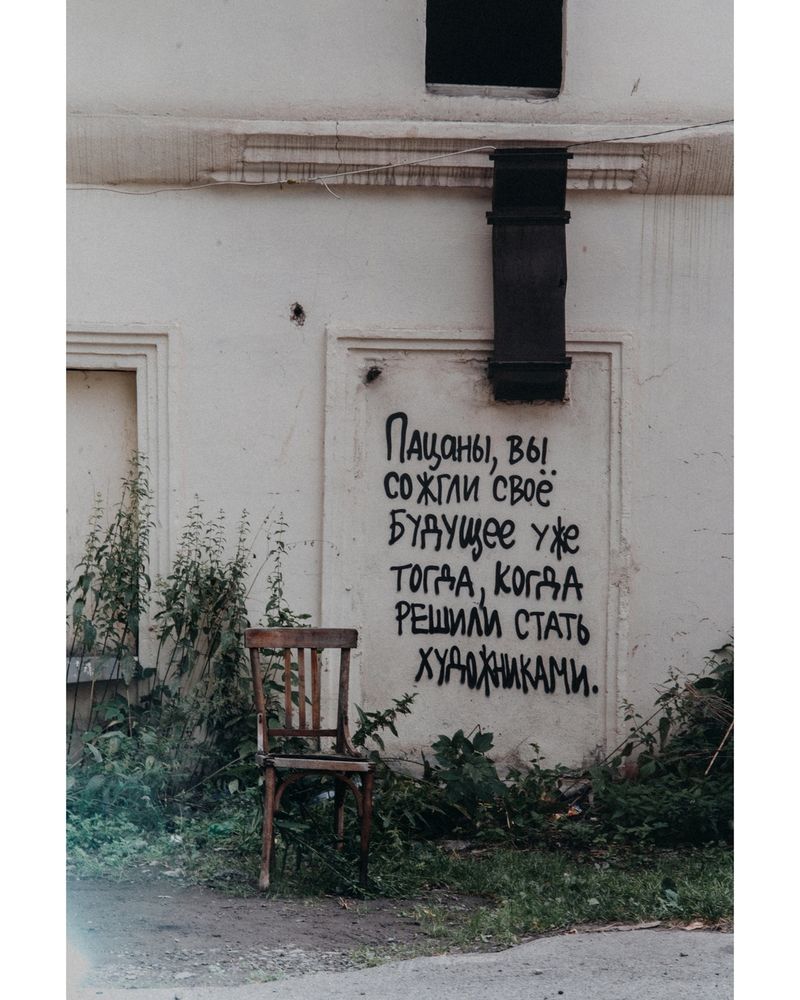 Пацаны, вы
сожгли своё
будущее уже
тогда, когда
решили стать
художниками.